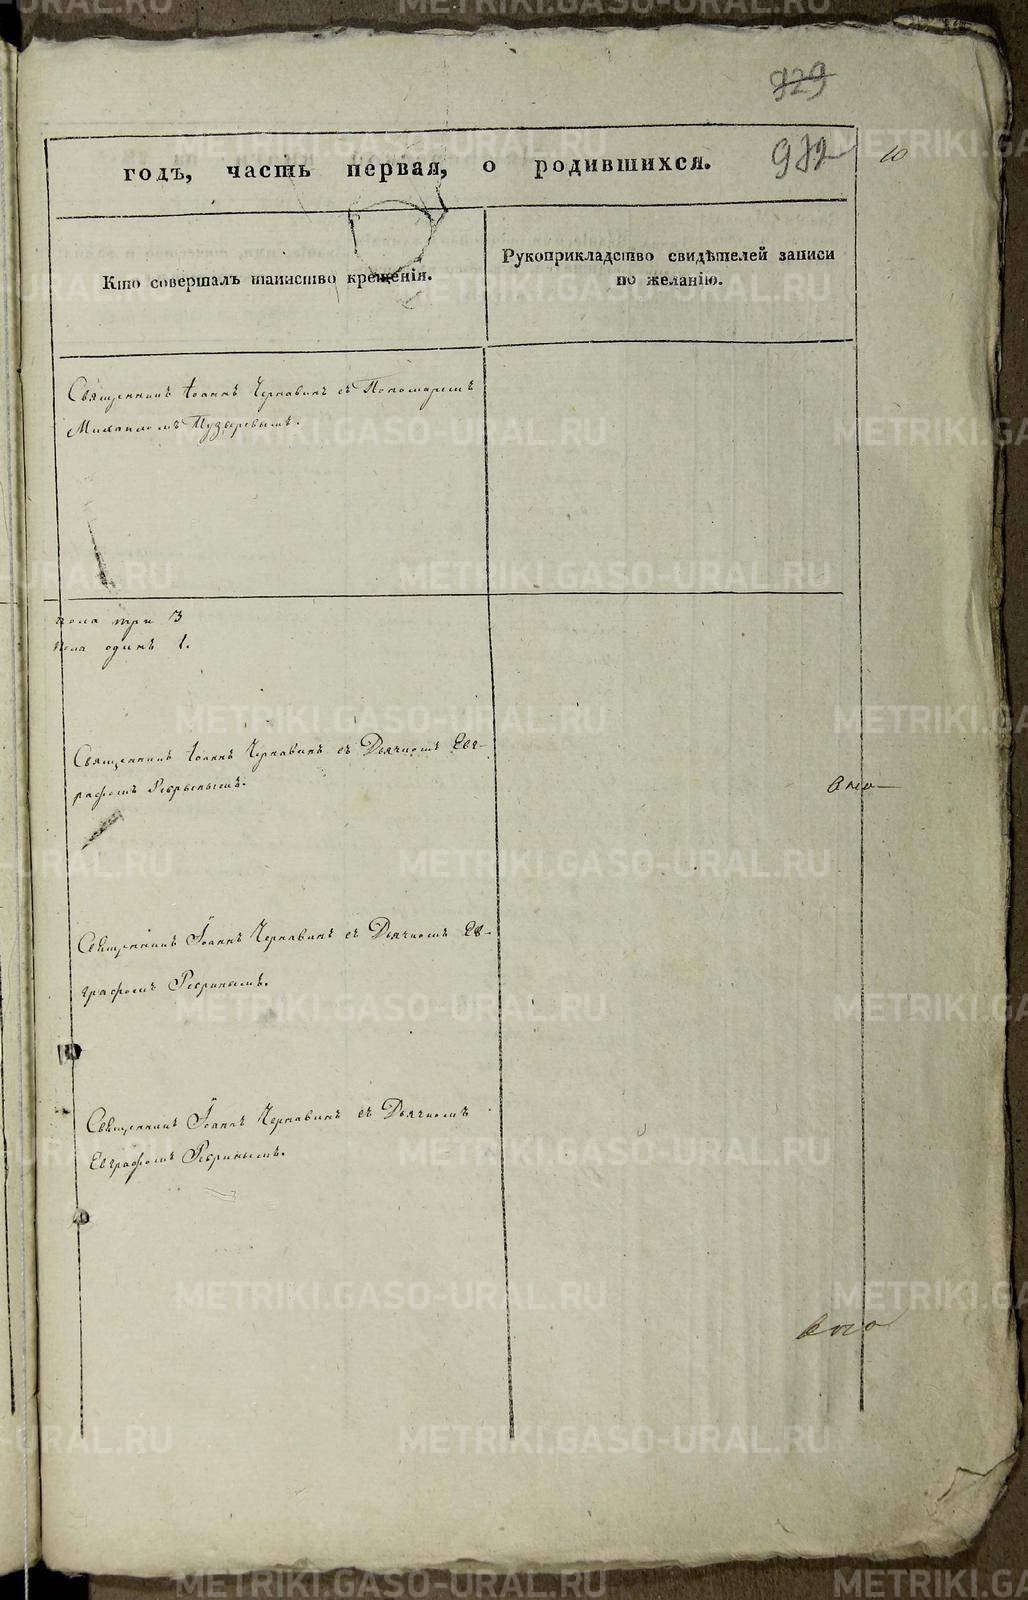 929
932
10
годъ, часть первая, о родившихся.
Кто совершалъ таинство крещенія.
Рукоприкладство свидѣтелей записи
по желанію.
Священникъ Іоаннъ Чернавинъ съ Пономаремъ
Михаиломъ Пузыревымъ.
пола три 3
пола одинъ 1.
Священникъ Іоаннъ Чернавинъ съ Дьячкомъ Евг-
рафомъ
Священникъ Іоаннъ Чернавинъ съ Дьячкомъ Ев-
графомъ
Священникъ Іоаннъ Чернавинъ съ Дьячкомъ
Евграфомъ
METRIKI.GASO-URAL.RU